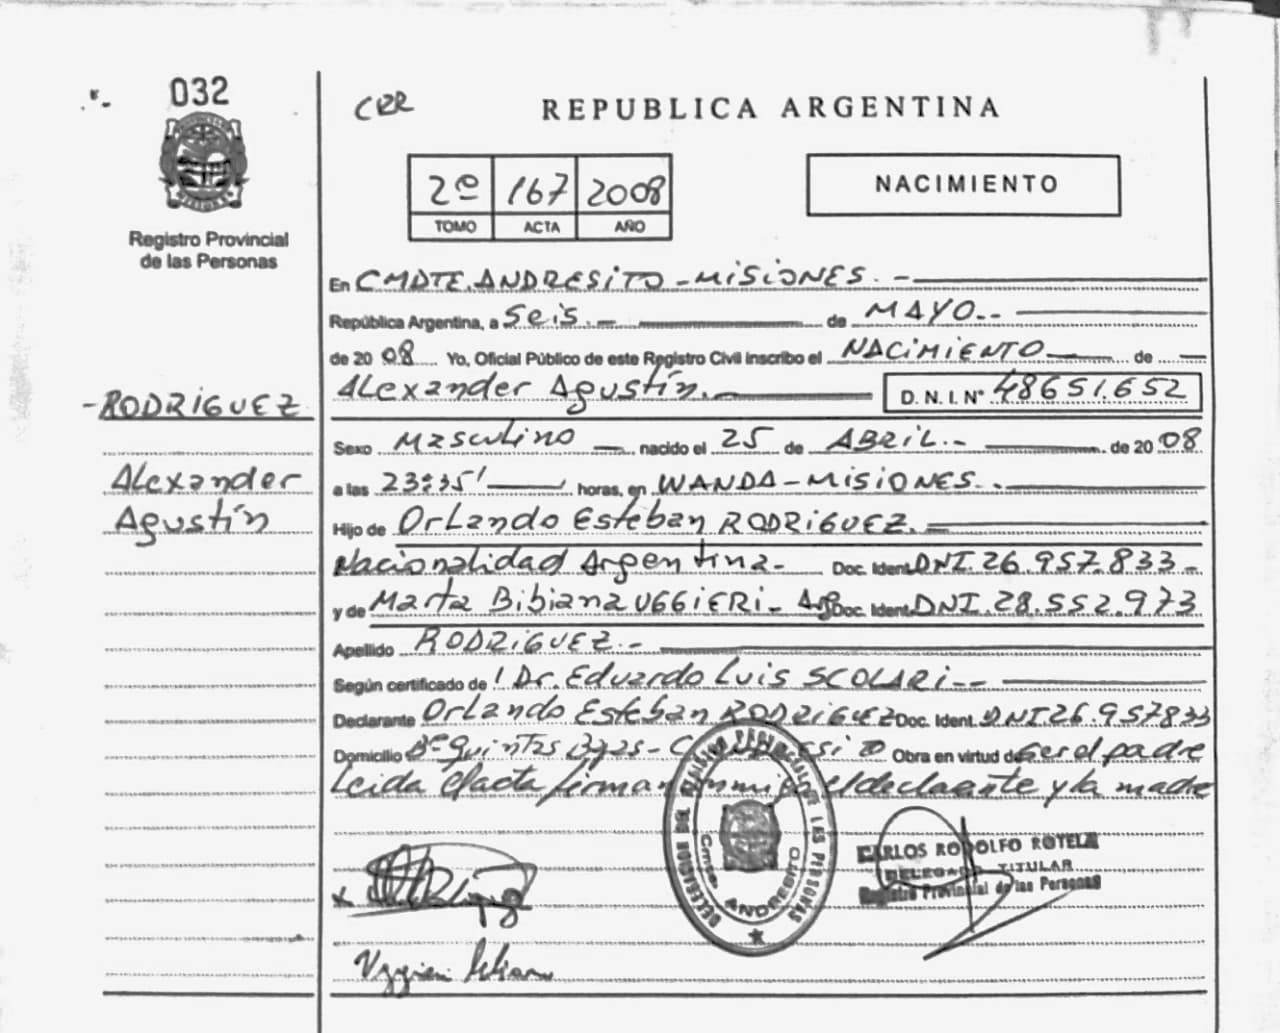 032
Registro Provincial
de las Personas
RODRIGUEZ
Alexander
Agustín
CRR
REPUBLICA ARGENTINA
2º 167 2008
TOMO ACTA AÑO
NACIMIENTO
En CMDTE. ANDRESITO - MISIONES. -
República Argentina, a Seis. - de MAYO. -
de 20 08 Yo, Oficial Público de este Registro Civil inscribo el NACIMIENTO de
Alexander Agustín. D. N. I. Nº 48651.652
Sexo Masculino nacido el 25 de ABRIL. - de 20 08
a las 23:35' horas, en WANDA - MISIONES. .
Hijo de Orlando Esteban RODRIGUEZ. -
Nacionalidad Argentina - Doc. Ident. DNI. 26.957.833 -
y de Marta Bibiana UGGIERI - Arg Doc. Ident. DNI. 28.552.973
Apellido RODRIGUEZ. -
Según certificado de Dr. Eduardo Luis SCOLARI - -
Declarante Orlando Esteban RODRIGUEZ Doc. Ident. DNI. 26.957833
Domicilio Bº Quintas Obra en virtud de ser el padre
Leida el acta firman el declarante y la madre
DELEGACION DEL REGISTRO PROVINCIAL DE LAS PERSONAS
Cmte. ANDRESITO
CARLOS RODOLFO ROTELA
DELEGADO TITULAR
Registro Provincial de las Personas